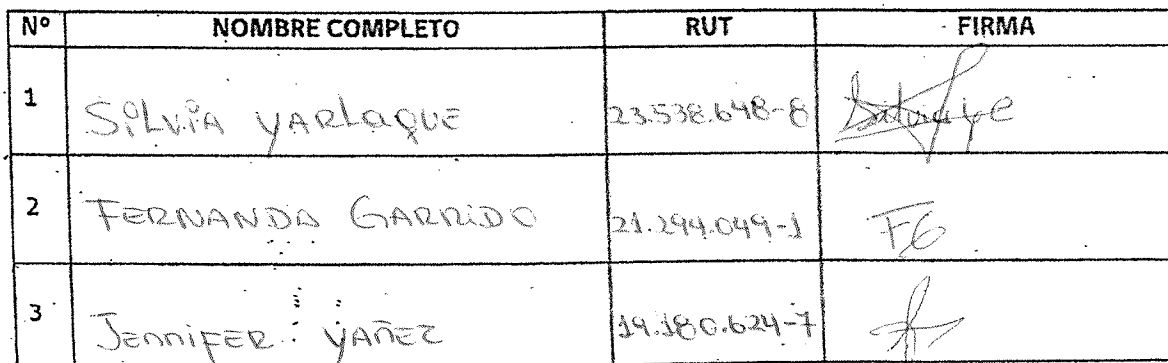 Nº NOMBRE COMPLETO RUT FIRMA
1 SilviA YARLAQUE 23.538.648-8
2 FERNANDA GARRIDO 21.294.049-1 FG
3 JENNIFER YAÑEZ 19.180.624-7